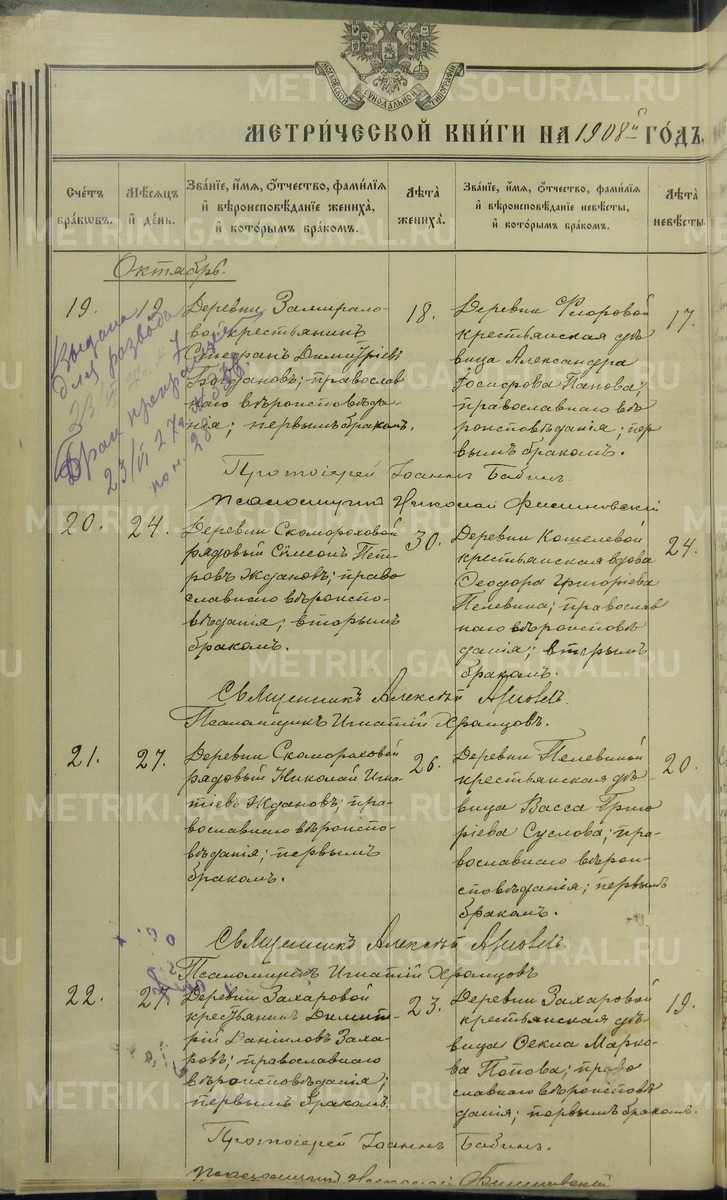 МОСКОВСКОЙ СѴНОДАЛЬНОЙ ТИПОГРАФІИ
МЕТРИ́ЧЕСКОЙ КНИ́ГИ НА 1908й ГО́ДЪ,
Сче́тъ бра́ковъ.
Мѣ́сяцъ и҆ де́нь.
Зва́нїе, и҆́мѧ, ѻ҆́тчество, фами́лїѧ и҆ вѣроисповѣ́данїе жениха̀, и҆ кото́рымъ бра́комъ.
Лѣ́та жениха̀.
Зва́нїе, и҆́мѧ, ѻ҆́тчество, фами́лїѧ и҆ вѣроисповѣ́данїе невѣ́сты, и҆ кото́рымъ бра́комъ.
Лѣ́та невѣ́сты.
Октябрь.
19.
19.
Деревни Замирало-
вой крестьянинъ
Дмитріевъ
Богдановъ; православ
наго вѣроисповѣда-
нія; первымъ бракомъ.
18.
Деревни Флоровой
крестьянская дѣ
вица Александра
Попова;
православнаго вѣ
роисповѣданія; пер
вымъ бракомъ.
17.
Выдана
для развода
Брак прекращен
23/VI 27г.
Протоіерей Іоаннъ Бабинъ.
Псаломщикъ Николай
20.
24.
Деревни Скомороховой
рядовый Симеонъ Пет-
ровъ Ждановъ; право
славнаго вѣроиспо-
вѣданія; вторымъ
бракомъ.
30.
Деревни Кошелевой
крестьянская вдова
Ѳеодора Григоріева
Пелевина; православ
наго вѣроисповѣ
данія; вторымъ
бракомъ.
24.
Священникъ Алексѣй
Псаломщикъ Игнатій Храмцовъ.
21.
27.
Деревни Скомороховой
рядовый Николай Игна
тіевъ Ждановъ; пра-
вославнаго вѣроиспо-
вѣданія; первымъ
бракомъ.
26.
Деревни Пелевиной
крестьянская дѣ-
вица Васса Григо
ріева Суслова; пра-
вославнаго вѣрои-
сповѣданія; первымъ
бракомъ.
20.
Священникъ Алексѣй
Псаломщикъ Игнатій Храмцовъ
22.
27.
Деревни Захаровой
крестьянинъ Димит-
рій Даніиловъ Заха-
ровъ; православнаго
вѣроисповѣданія;
первымъ бракомъ.
23.
Деревни Захаровой
крестьянская дѣ-
вица Ѳекла Марко-
ва Попова; право
славнаго вѣроисповѣ
данія; первымъ бракомъ.
19.
Протоіерей Іоаннъ Бабинъ.
METRIKI.GASO-URAL.RU